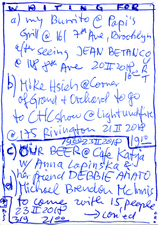 WAITING FOR
a) my Burrito @ Papi's
Grill @ 161 7th Ave, Brooklyn
after seeing JEAN BETANCO
@ 8th Ave 20 II 2018
b) Mike Hsieh @ Corner
of Grand + Orchard to go
to CHC show @ Light und fire
@ 175 Rivington 21 II 2018
c) OUR BEER @ Cafe Katja
w/ Anna Lapinska &
her friend DEBBIE AMATO
d) Michael Brendon McInnis
to come with 15 people
23 II 2018 → cont'd